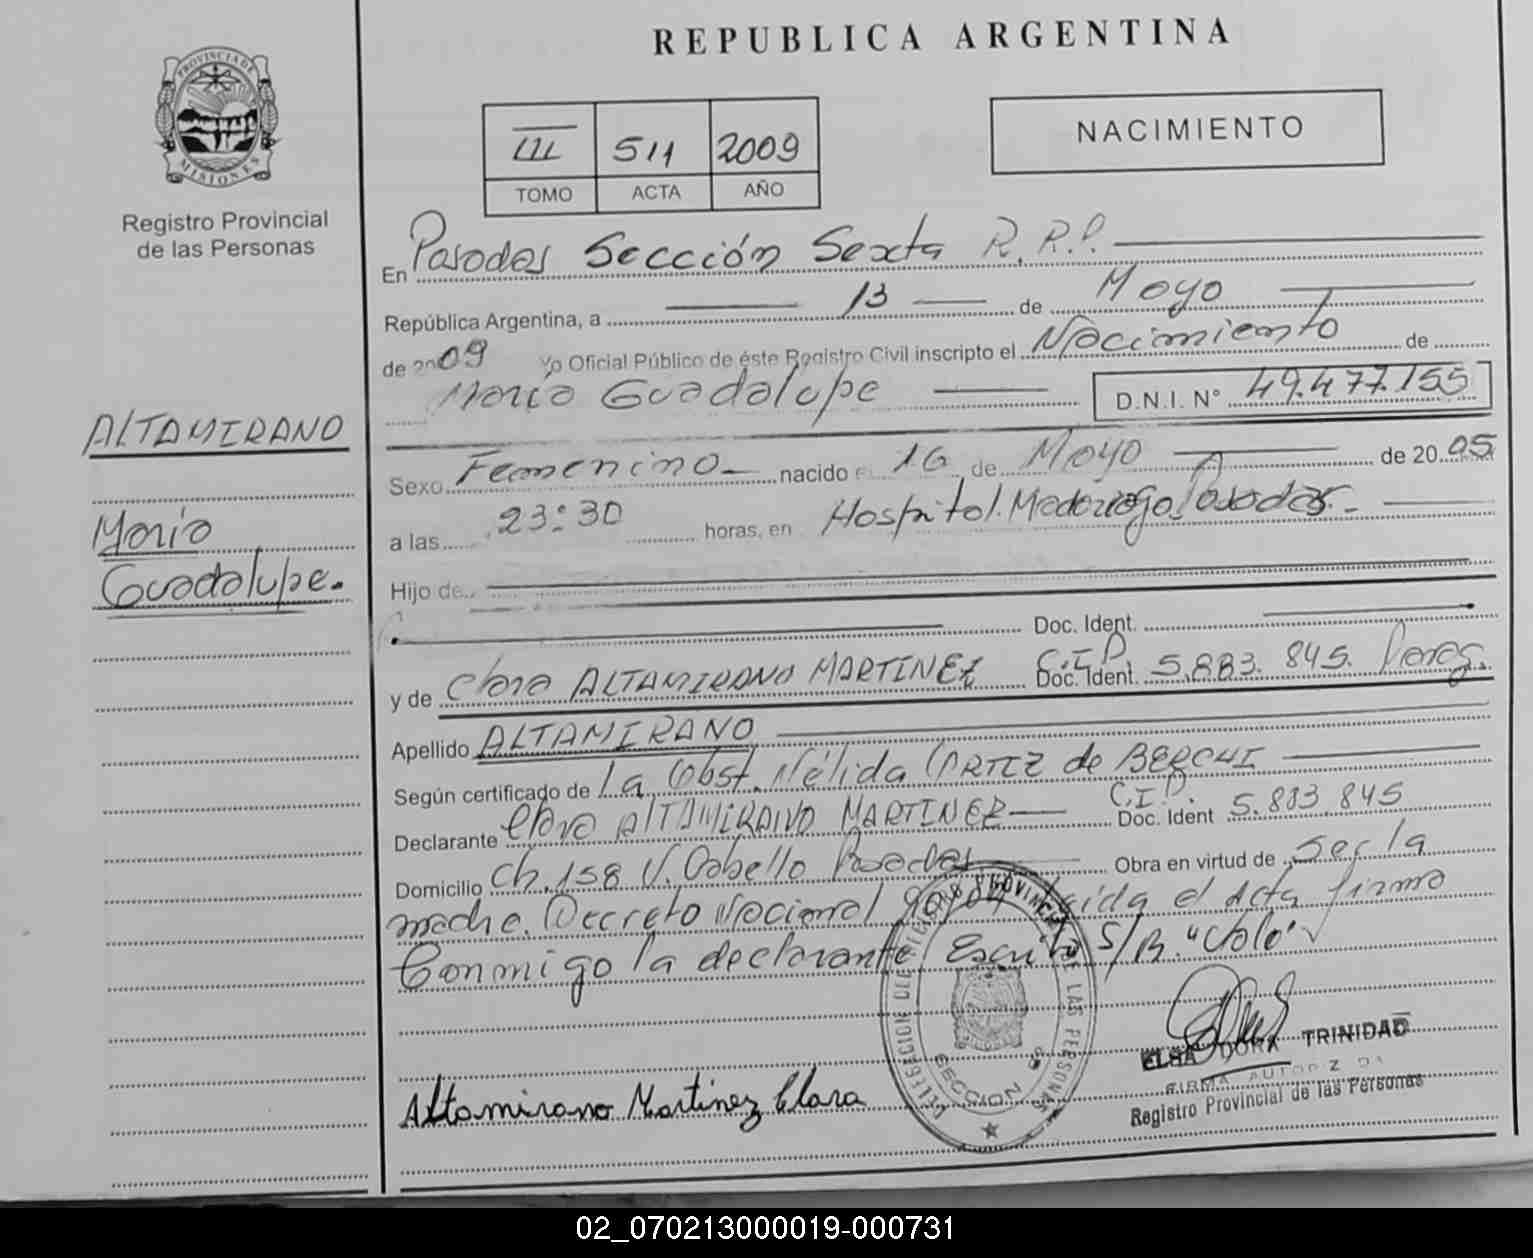 REPUBLICA ARGENTINA
PROVINCIA DE
MISIONES
Registro Provincial
de las Personas
III 511 2009
TOMO ACTA AÑO
NACIMIENTO
En Posadas Sección Sexta R.R.P.
República Argentina, a 13 de Mayo
de 2009 Yo Oficial Público de éste Registro Civil inscripto el Nacimiento de
María Guadalupe D.N.I. N° 49.477.155
ALTAMIRANO
María
Guadalupe.
Sexo Femenino nacido el 16 de Mayo de 2005
a las 23:30 horas, en Hospital. Madariaga Posadas.
Hijo de
Doc. Ident.
y de Clara ALTAMIRANO MARTINEZ C.I.P. Doc. Ident. 5.883.845.
Apellido ALTAMIRANO
Según certificado de La Obst. Nélida ORTIZ de BERCHI
Declarante Clara ALTAMIRANO MARTINEZ C.I.P. Doc. Ident 5.883.845
Domicilio Ch. 158 V. Cabello Posadas Obra en virtud de Ser la
madre. Decreto Nacional Leída el Acta firma
Conmigo la declarante. Escrito S/B.
DELEGACION DEL REGISTRO PROVINCIAL DE LAS PERSONAS
SECCION 6ª
Altamirano Martinez Clara
ELSA DORA TRINIDAD
FIRMA AUTORIZADA
Registro Provincial de las Personas
02_070213000019-000731